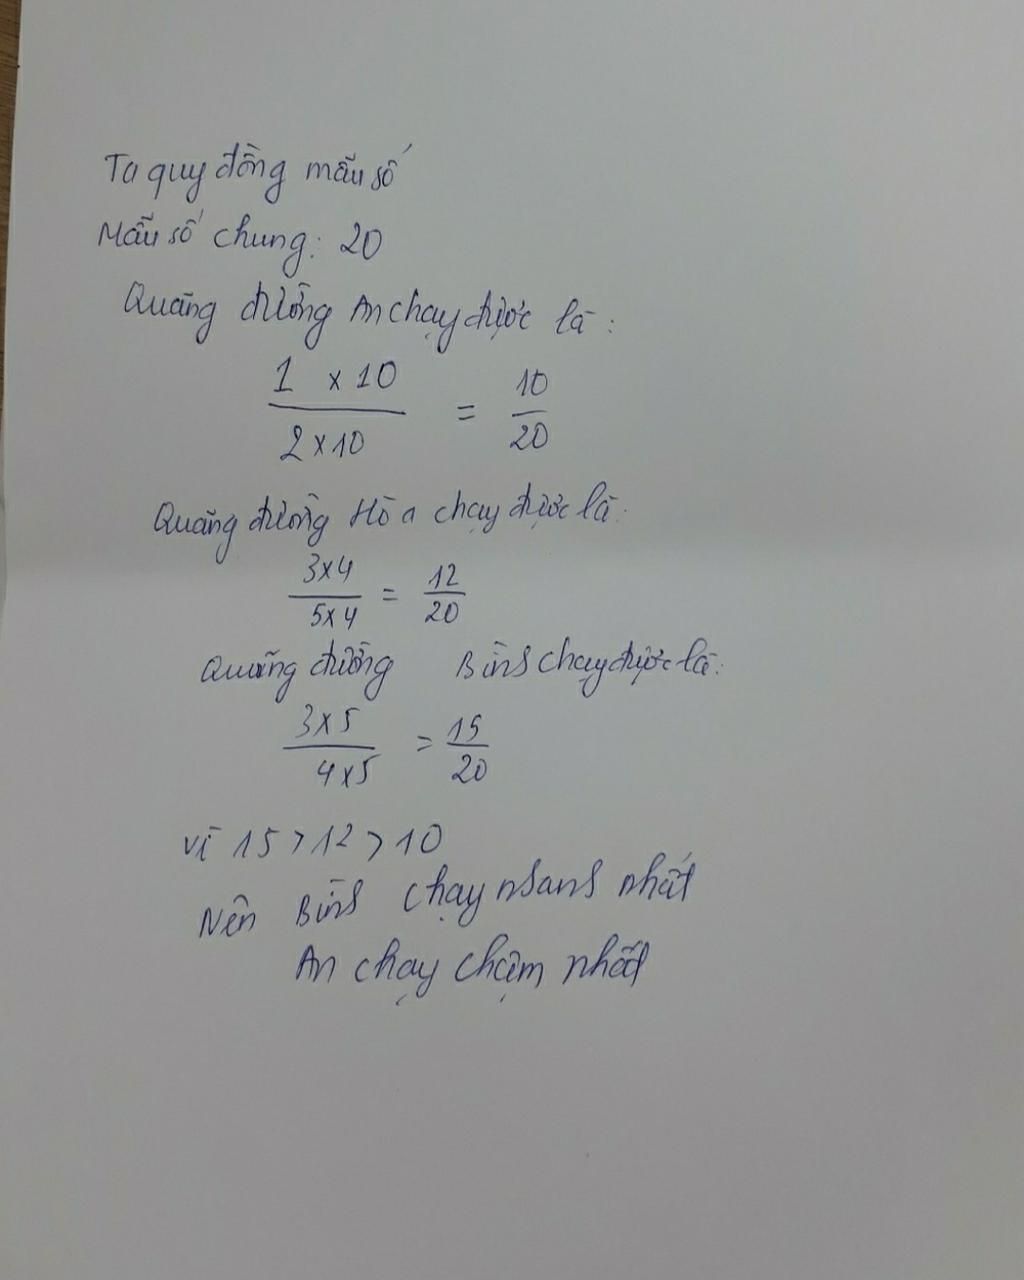 Ta quy đồng mẫu số
Mẫu số chung: 20
Quãng đường An chạy được là:
1 x 10 / 2 x 10 = 10 / 20
Quãng đường Hòa chạy được là:
3x4 / 5x4 = 12 / 20
Quãng đường Bình chạy được là:
3x5 / 4x5 = 15 / 20
Vì 15 > 12 > 10
Nên Bình chạy nhanh nhất
An chạy chậm nhất